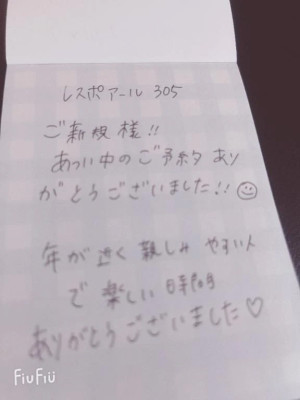 レスポアール 305
ご新規様!!
あつい中のご予約あり
がとうございました!!
年が近く親しみやすい人
で楽しい時間
ありがとうございました♡
FiuFiu